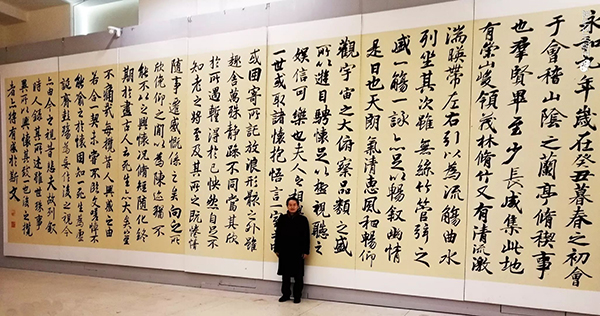 永和九年歲在癸丑暮春之初會
于會稽山陰之蘭亭脩禊事
也群賢畢至少長咸集此地
有崇山峻領茂林脩竹又有清流激
湍暎帶左右引以為流觴曲水
列坐其次雖無絲竹管弦之
盛一觴一詠亦足以暢叙幽情
是日也天朗氣清惠風和暢仰
觀宇宙之大俯察品類之盛
所以遊目騁懷足以極視聽之
娛信可樂也夫人之
一世或取諸懷抱悟言一室
或因寄所託放浪形骸之外雖
趣舍萬殊靜躁不同當其欣
於所遇暫得於己怏然自足不
知老之將至及其所之既惓情
隨事遷感慨係之矣向之所
欣俛仰之間以為陳迹猶不
能不以之興懷況脩短隨化終
期於盡古人云死生亦大矣豈
不痛哉每攬昔人興感之由
若合一契未嘗不臨文嗟悼不
能喻之於懷固知一死生為虛
誕齊彭殤為妄作後之視今
亦由今之視昔悲夫故列叙
時人錄其所述雖世殊事
異所以興懷其致一也後之攬
者亦將有感於斯文